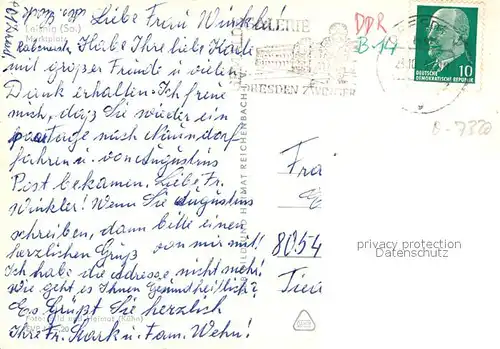 Leisnig (Sa.)
Marktplatz
Liebe Frau Winkler!
Habe Ihre liebe Karte
mit großer Freude u. vielen
Dank erhalten. Ich freue
mich, daß Sie wieder ein
paar Tage nach Naundorf
fahren u. von Augustus
Post bekamen. Liebe Fr.
Winkler! Wenn Sie Augustus
schreiben, dann bitte einen
herzlichen Gruß von mir mit!
Ich habe die Adresse nicht mehr!
Wie geht es Ihnen Gesundheitlich?
Es Grüßt Sie herzlich
Ihre Fr. Mark u. Fam. Wehn!
Foto: Bild und Heimat (Kühn)
BILD UND HEIMAT REICHENBACH
GALERIE
DRESDEN ZWINGER
DDR
B-14
DEUTSCHE
DEMOKRATISCHE REPUBLIK
10
B-7320
8054
privacy protection
Datenschutz